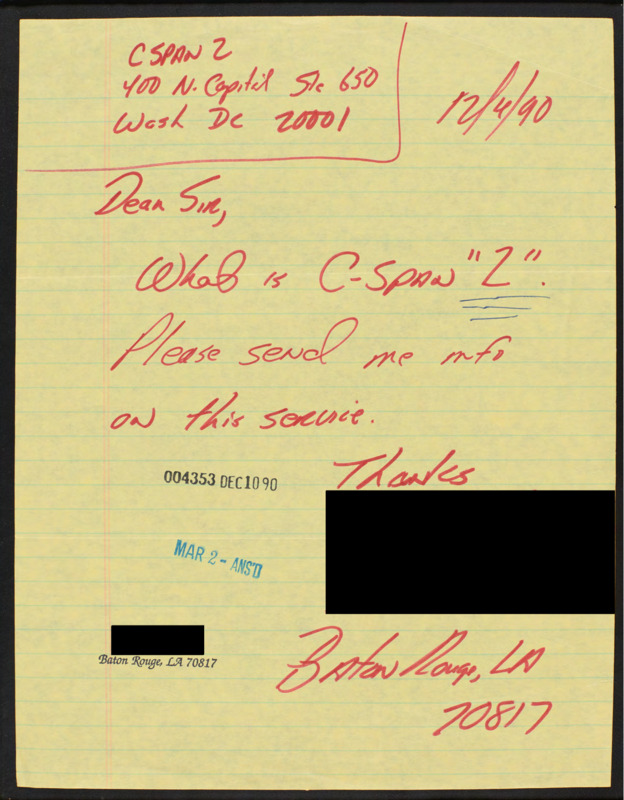 C SPAN 2
400 N. Capitol Ste 650
Wash DC 20001
12/4/90
Dear Sir,
What is C-SPAN "2".
Please send me info
on this service.
Thanks
004353 DEC 10 90
MAR 2 - ANS'D
Baton Rouge, LA 70817
Baton Rouge, LA
70817